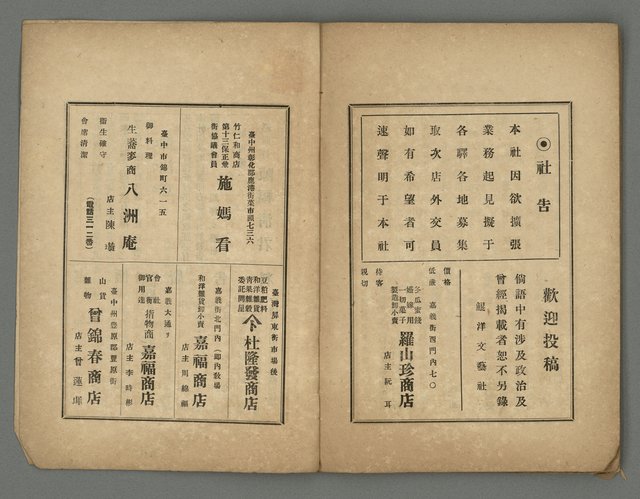 ◉社告
本社因欲擴張
業務起見擬于
各驛各地募集
取次店外交員
如有希望者可
速聲明于本社
歡迎投稿
倘語中有涉及政治及
曾經揭載者恕不另錄
鯤洋文藝社
冬瓜蜜餞
一切菓子
製造卸小賣
羅山珍商店
店主阮耳
嘉義街西門內七〇
價格
低廉
待客
親切
臺中州彰化郡鹿港街菜市頭七三六
竹仁和商店
第十三保正兼
街協議會員
施媽看
臺中市錦町六一五
御料理
生蕎麥商
八洲庵
店主陳
(電話三一二番)
衛生確守
會席清潔
臺灣屏東街市場後
豆粕肥料
和洋雜貨
青菓雜穀
委託問屋
杜隆發商店
嘉義街北門內(郎內教場)
和洋雜貨卸小賣
嘉福商店
店主周綿
嘉義大通リ
會社
官衙
御用達
指物商
嘉福商店
店主李時彬
臺中州豐原郡豐原街
山貨
雜物
曾錦春商店
店主曾蓮